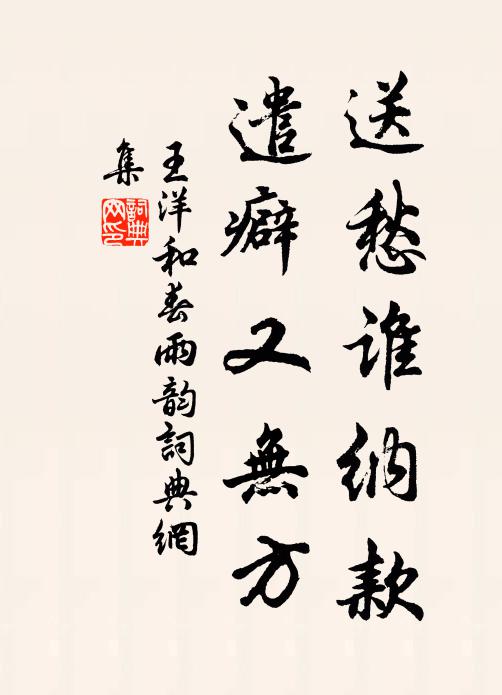 送愁誰納款
遣癖又無方
王洋和春雨韵詞典網
集
詞典
网印